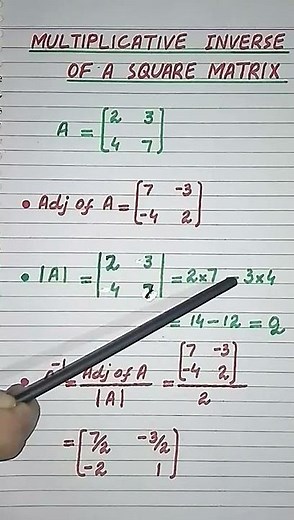 MULTIPLICATIVE INVERSE
OF A SQUARE MATRIX
A = [2 3
4 7]
• Adj of A = [7 -3
-4 2]
• |A| = |2 3
4 7| = 2×7 - 3×4
= 14 - 12 = 2
• A⁻¹ = Adj of A / |A| = [7 -3
-4 2] / 2
= [7/2 -3/2
-2 1]